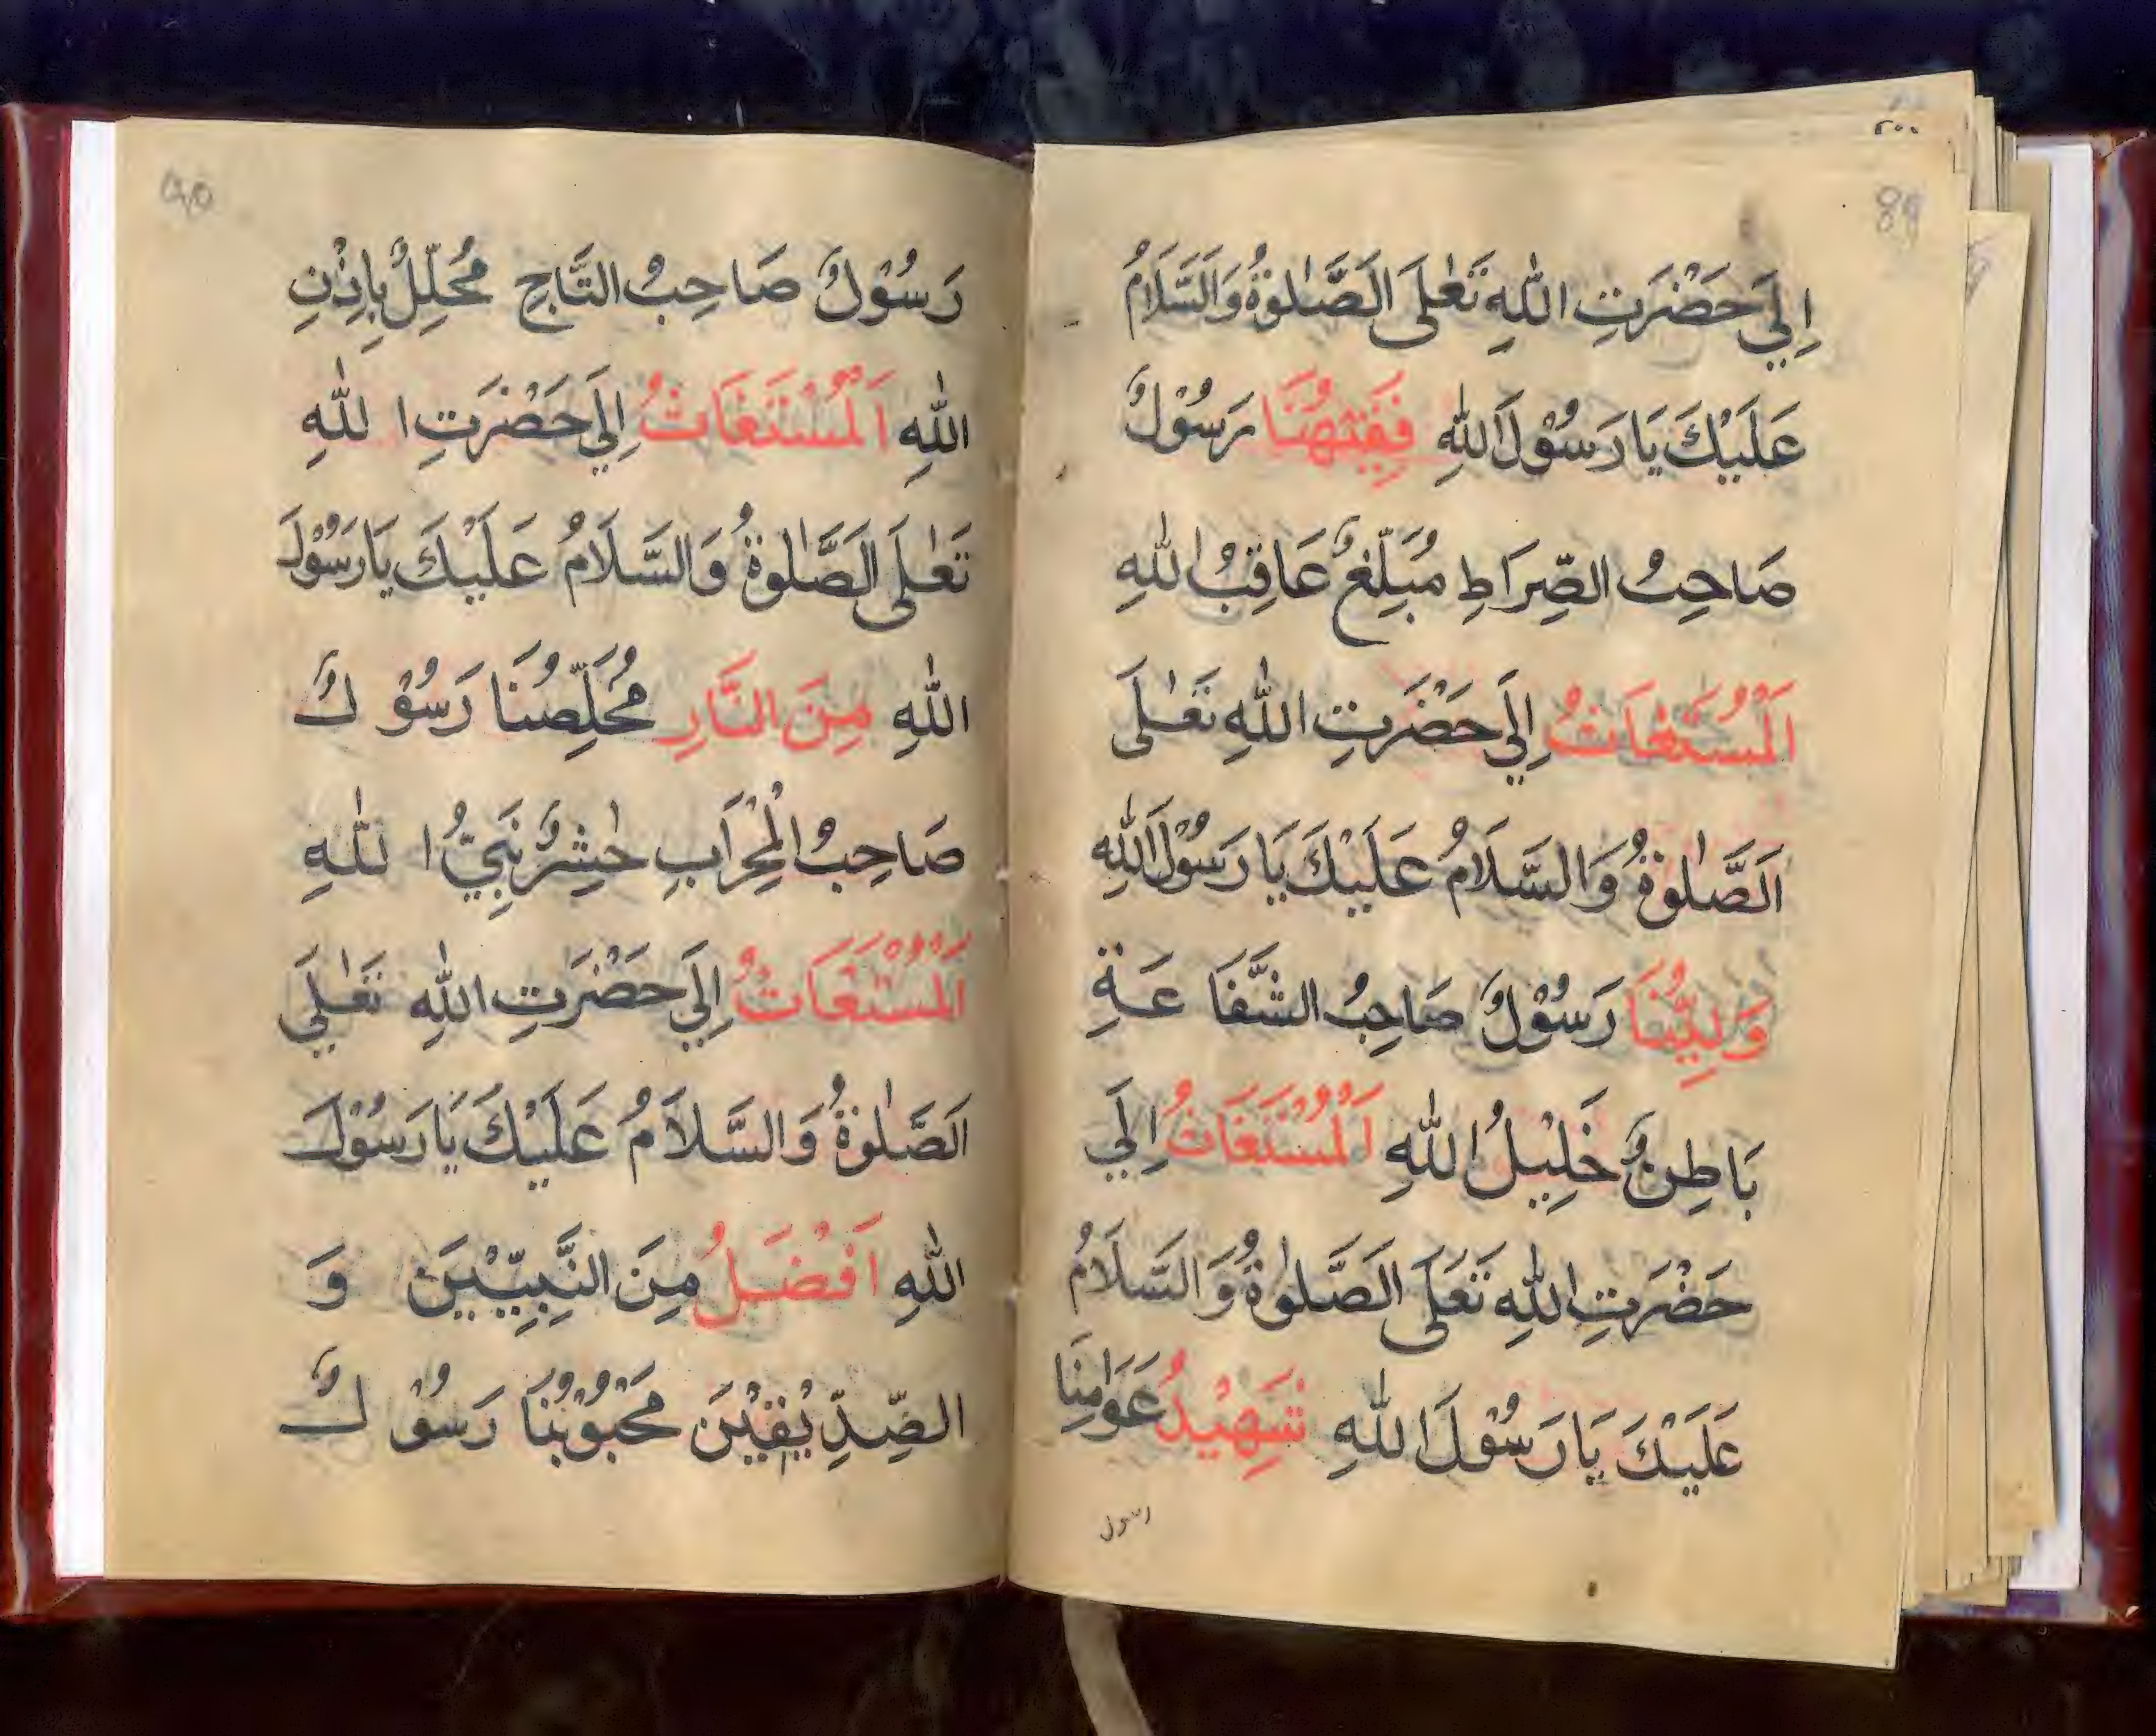 89
اِلَي حَضْرَتِ اللّٰهِ تَعٰلَى اَلصَّلٰوةُ وَالسَّلَامُ
عَلَيْكَ يَا رَسُوْلَ اللّٰهِ فَقِيْهُنَا رَسُوْلٌ
صَاحِبُ الصِّرَاطِ مُبَلِّغٌ عَاقِبُ اللّٰهِ
اَلْمُسْتَغَاثُ اِلَي حَضْرَتِ اللّٰهِ تَعٰلَى
اَلصَّلٰوةُ وَالسَّلَامُ عَلَيْكَ يَا رَسُوْلَ اللّٰهِ
وَلِيُّنَا رَسُوْلٌ صَاحِبُ الشَّفَا عَةِ
بَاطِنٌ خَلِيْلُ اللّٰهِ اَلْمُسْتَغَاثُ اِلَي
حَضْرَتِ اللّٰهِ تَعَلَى اَلصَّلٰوةُ وَالسَّلَامُ
عَلَيْكَ يَارَسُوْلَ اللّٰهِ شَهِيْدُ عَوَامِنَا
رسول
90
رَسُوْلٌ صَاحِبُ التَّاجِ مُحَلِّلٌ بِاِذْنِ
اللّٰهِ اَلْمُسْتَغَاثُ اِلَي حَضْرَتِ اللّٰهِ
تَعٰلَى اَلصَّلٰوةُ وَالسَّلَامُ عَلَيْكَ يَارَسُوْلَ
اللّٰهِ مِنَ النَّارِ مُخَلِّصُنَا رَسُوْلٌ
صَاحِبُ الْمِحْرَابِ حٰشِرٌ نَبِيُّ اللّٰهِ
اَلْمُسْتَغَاثُ اِلَي حَضْرَتِ اللّٰهِ تَعٰلَي
اَلصَّلٰوةُ وَالسَّلَامُ عَلَيْكَ يَارَسُوْلَ
اللّٰهِ اَفْضَلُ مِنَ النَّبِيِّيْنَ وَ
الصِّدِّيْقِيْنَ مَحْبُوْبُنَا رَسُوْلٌ